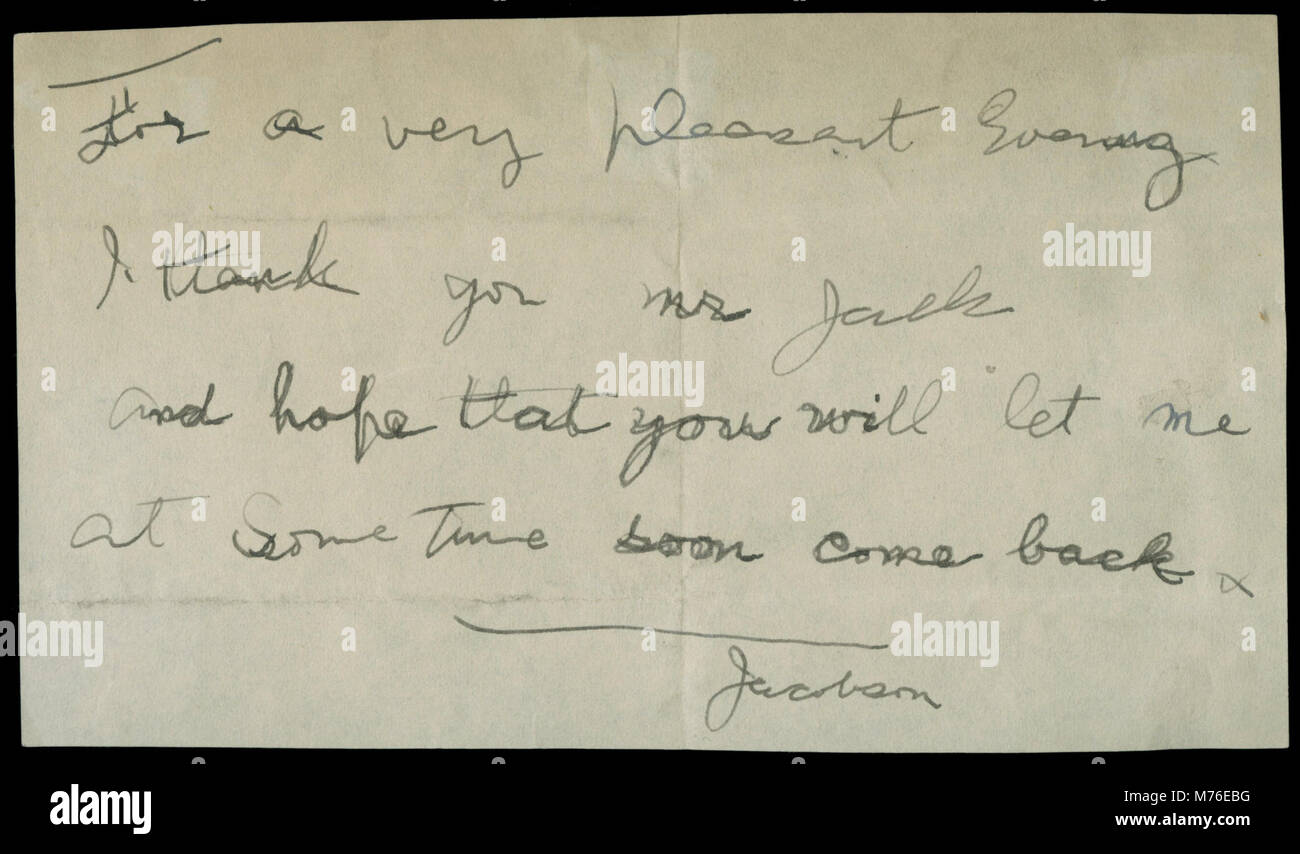 For a very pleasant Evening
I thank you mr Jack
and hope that your will let me
at Some Time soon come back
Jacobson
alamy
alamy
alamy
alamy
alamy
alamy
Image ID: M76EBG
www.alamy.com